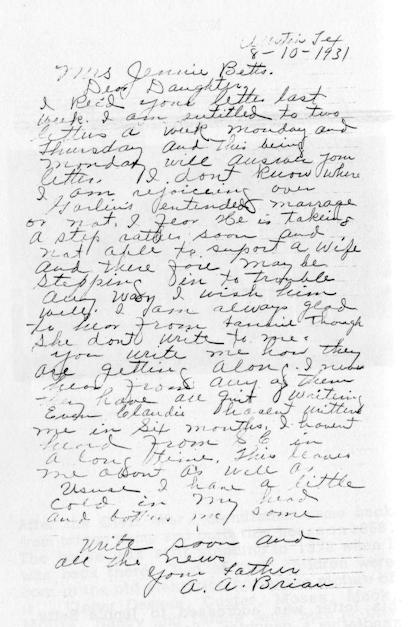 Austin Tex
8-10-1931
Mrs Jennie Betts.
Dear Daughter.
I Rec'd your letter last
week. I am entitled to two
letters a week Monday and
Thursday and this being
Monday will answer your
letter. I don't know where
I am rejoiceing over
entended marrage
or not. I fear He is takeing
a step rather soon and
not able to suport a wife
and there fore may be
stepping in to trouble
any way I wish him
well. I am always glad
to hear from Fannie though
she dont write to me.
you write me how they
are getting along. I never
hear from any of them
they have all quit writing
Even Claudie hasent written
me in six months. I havent
heard from S E in
a long time. This leaves
me about as well as
Usual I have a little
cold in my head
and me some
Write soon and
all the news
your Father
A. A. Brian